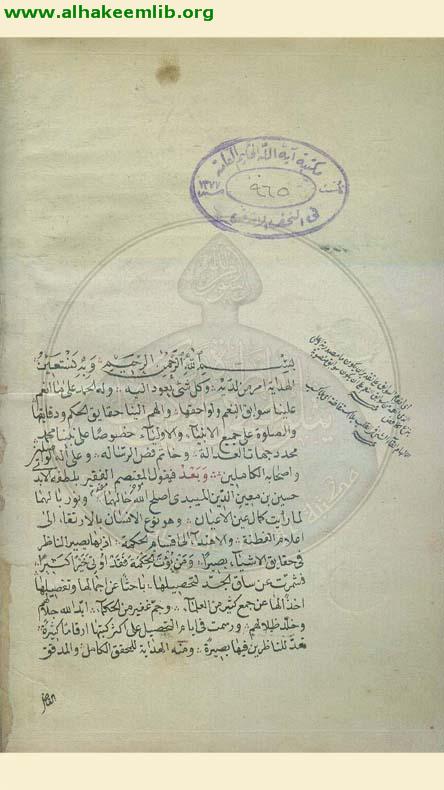 www.alhakeemlib.org
مكتبة آية الله الحكيم العامة
٩٦٥
١٣٧٧
في النجف الاشرف
بسم الله الرحمن الرحيم وبه نستعين
الهداية امر من لديه وكل شئ يعود اليه وله الحمد على ما انعم
علينا سوابق النعم ولواحقها والهم الينا حقايق الحكم ودقايقها
والصلوة على جميع الانبيآء والاوليآء خصوصا على نبينا محمد
محدد جهات العدالة وخاتم فص الرسالة وعلى اله
واصحابه الكاملين وبعد فيقول المعتصم الفقير بلطفه
حسين بن معين الدين الميبدى اصلح الله حالهما ونور بالهما
لما رايت كمال عين الاعيان وهو نوع الانسان بالارتقاء الى
اعلام الفطنة والاهتداء الى اقسام الحكمة اذ بها يصير الناظر
في حقايق الاشيآء بصيرا ومن يؤت الحكمة فقد اوتى خيرا كثيرا
فشمرت عن ساق الجد لتحصيلها باحثا عن اجمالها وتفصيلها
اخذا لها عن جمع كثير من العلمآء وجم غفير من الحكمآء ابد الله جلالهم
وخلد ظلالهم ورسمت في ايام التحصيل على اكثر كتبها ارقاما كثيرة
تعد للناظرين فيها بصيرة ومنه الهداية للمحقق الكامل والمدقق